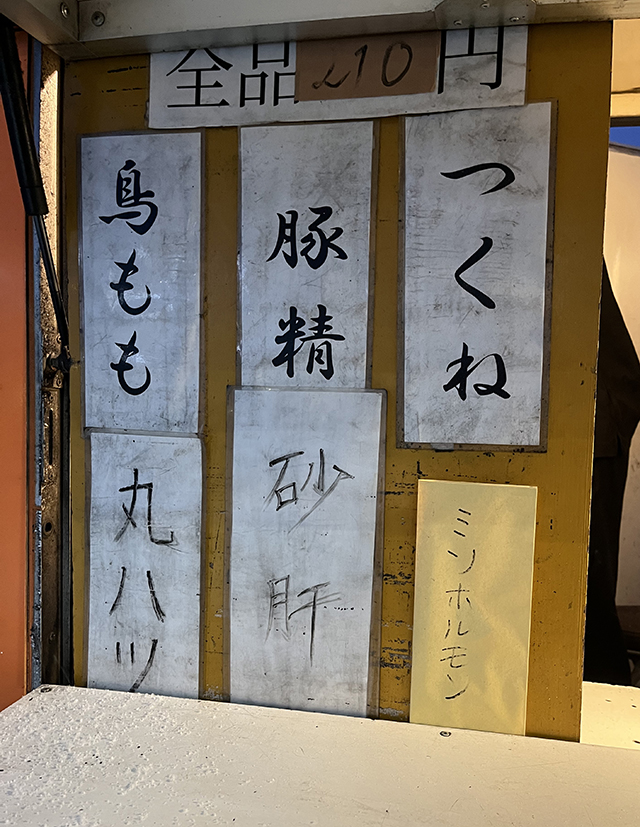 全品210円
つくね
豚精
鳥もも
ミノホルモン
砂肝
丸ハツ